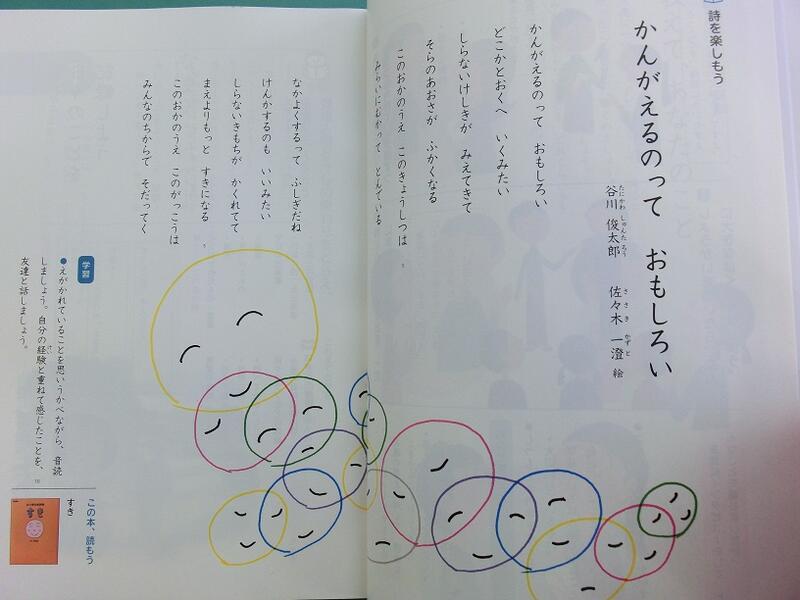 詩を楽しもう
かんがえるのって おもしろい
谷川 俊太郎
たにかわ しゅんたろう
佐々木 一澄 絵
ささき かずと
かんがえるのって おもしろい
どこかとおくへ いくみたい
しらないけしきが みえてきて
そらのあおさが ふかくなる
このおかのうえ このきょうしつは
みらいにむかって とんでいる
5
なかよくするって ふしぎだね
けんかするのも いいみたい
しらないきもちが かくれてて
まえよりもっと すきになる
このおかのうえ このがっこうは
みんなのちからで そだってく
学習
●えがかれていることを思いうかべながら、音読
しましょう。自分の経験と重ねて感じたことを、
けい
友達と話しましょう。
この本、読もう
すき
すき